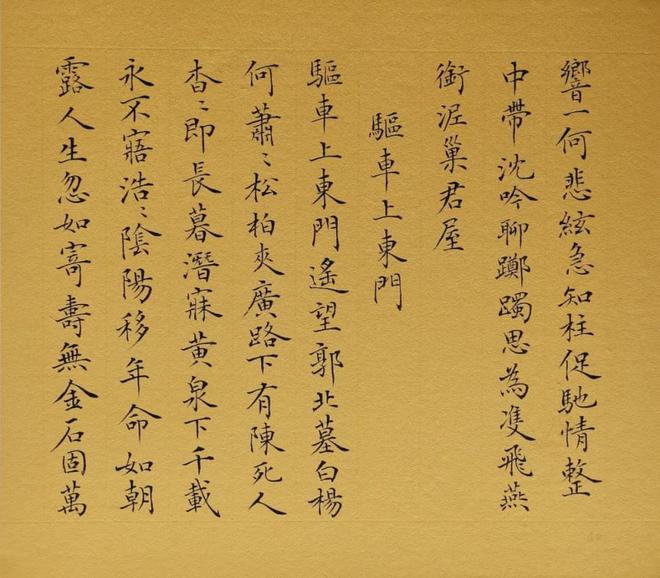 響一何悲絃急知柱促馳情整
中帶沈吟聊躑躅思為雙飛燕
銜泥巢君屋
驅車上東門
驅車上東門遙望郭北墓白楊
何蕭〻松柏夾廣路下有陳死人
杳〻即長暮潛寐黃泉下千載
永不寤浩〻陰陽移年命如朝
露人生忽如寄壽無金石固萬